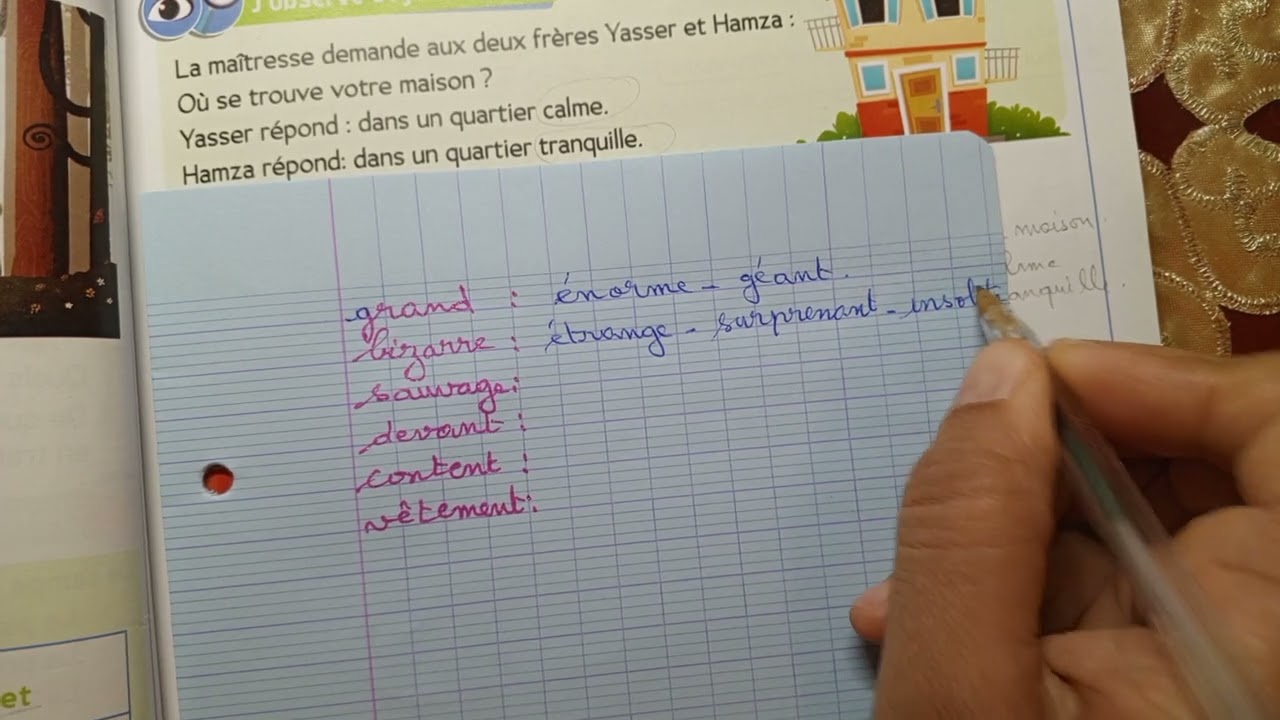 J'observe
La maîtresse demande aux deux frères Yasser et Hamza :
Où se trouve votre maison ?
Yasser répond : dans un quartier calme.
Hamza répond: dans un quartier tranquille.
maison
grand : énorme - géant.
bizarre : étrange - surprenant - insolit
sauvage:
devant :
content :
vêtement:
et